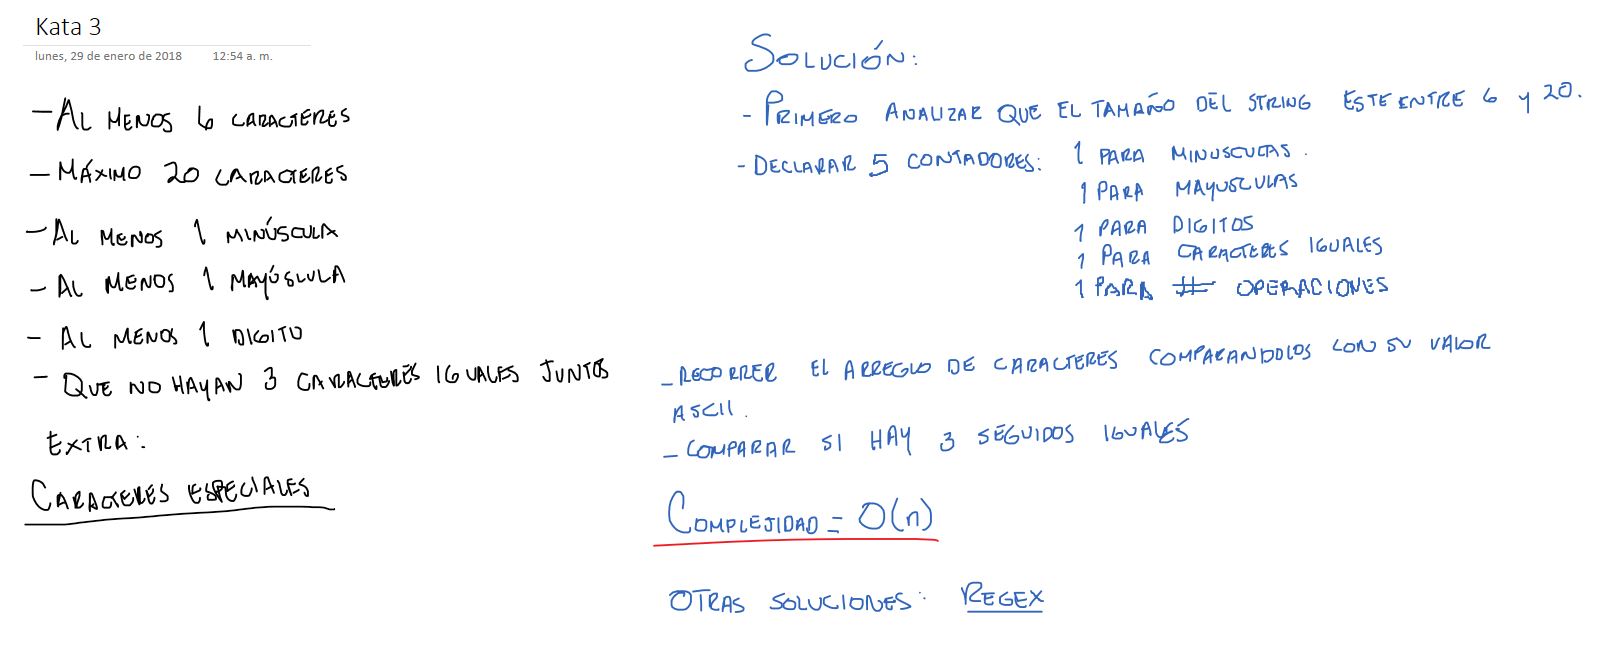 Kata 3
lunes, 29 de enero de 2018 12:54 a. m.
- AL MENOS 6 CARACTERES
- MÁXIMO 20 CARACTERES
- AL MENOS 1 MINÚSCULA
- AL MENOS 1 MAYÚSCULA
- AL MENOS 1 DIGITO
- QUE NO HAYAN 3 CARACTERES IGUALES JUNTOS
EXTRA:
CARACTERES ESPECIALES
SOLUCIÓN:
- PRIMERO ANALIZAR QUE EL TAMAÑO DEL STRING ESTE ENTRE 6 y 20.
- DECLARAR 5 CONTADORES: 1 PARA MINUSCULAS.
1 PARA MAYUSCULAS
1 PARA DIGITOS
1 PARA CARACTERES IGUALES
1 PARA # OPERACIONES
- RECORRER EL ARREGLO DE CARACTERES COMPARANDOLOS CON SU VALOR
ASCII.
- COMPARAR SI HAY 3 SEGUIDOS IGUALES
COMPLEJIDAD = O(n)
OTRAS SOLUCIONES: REGEX